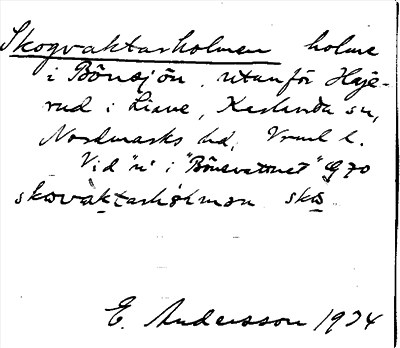 Skogvaktarholmen holme
i Bönsjön, utanför Haje-
rud i Liane, Karlanda sn,
Nordmarks hd, Vrml l.
Vid "n" i "Bönsvattnet" G 70
skωvaktarhòlmən skωs
E. Andersson 1934